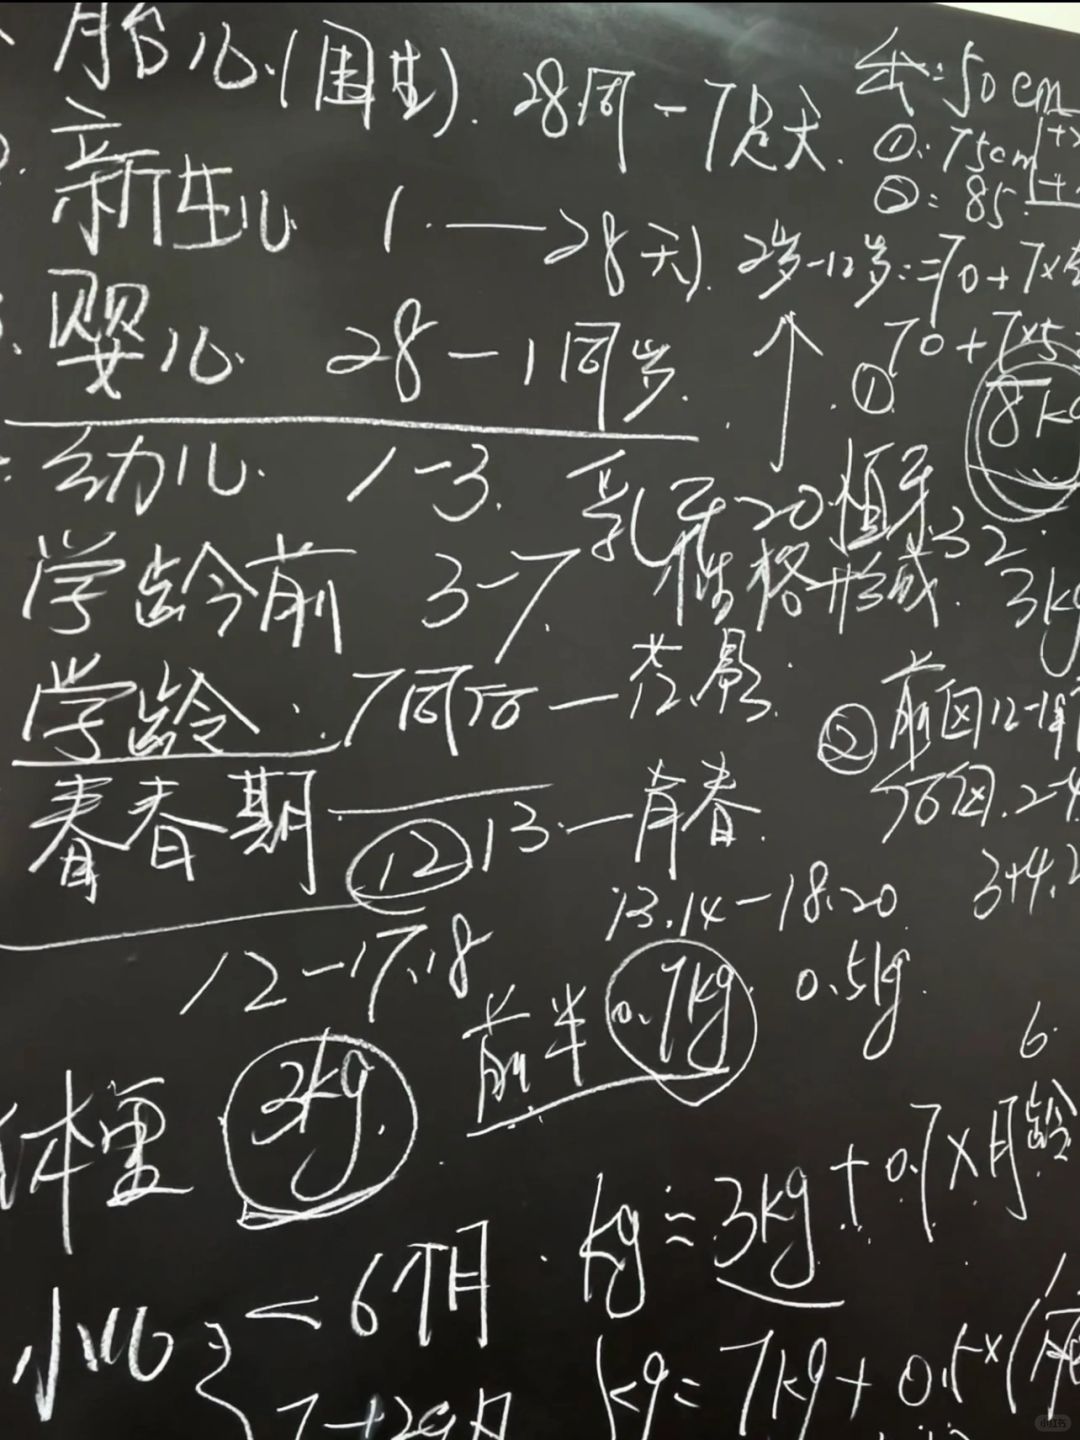 胎儿(围生). 28周-7足天.
出:50cm
①:75cm
②:85
新生儿 1.—28天)
2岁-12岁:=70+7×
70+7×5
婴儿 28-1周岁. ↑.①
8k
幼儿. 1-3. 乳牙20.恒牙32.
学龄前 3-7. 性格形成. 3kg
学龄. 7周后-
②前囟12-1
后囟.2-4
青春期 12 13.—青春.
3+4.
13.14-18.20
12-17.18
前半 0.7kg. 0.5kg.
6
体重 3kg.
kg=3kg+0.7×月龄
小儿 <6个月
kg=7kg+0.5×(
7-12个月